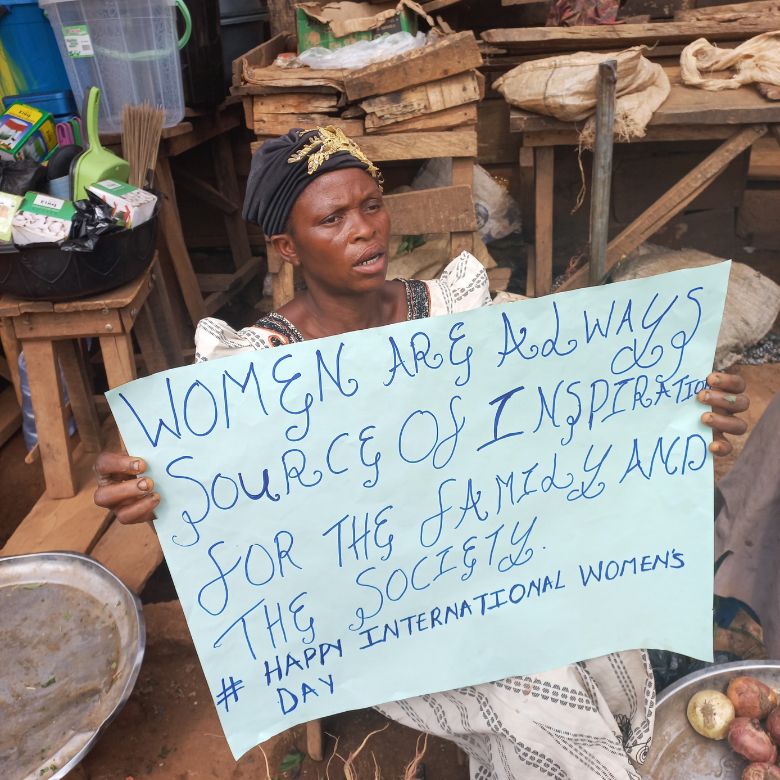 WOMEN ARE ALWAYS
SOURCE OF INSPIRATION
FOR THE FAMILY AND
THE SOCIETY.
# HAPPY INTERNATIONAL WOMEN'S
DAY